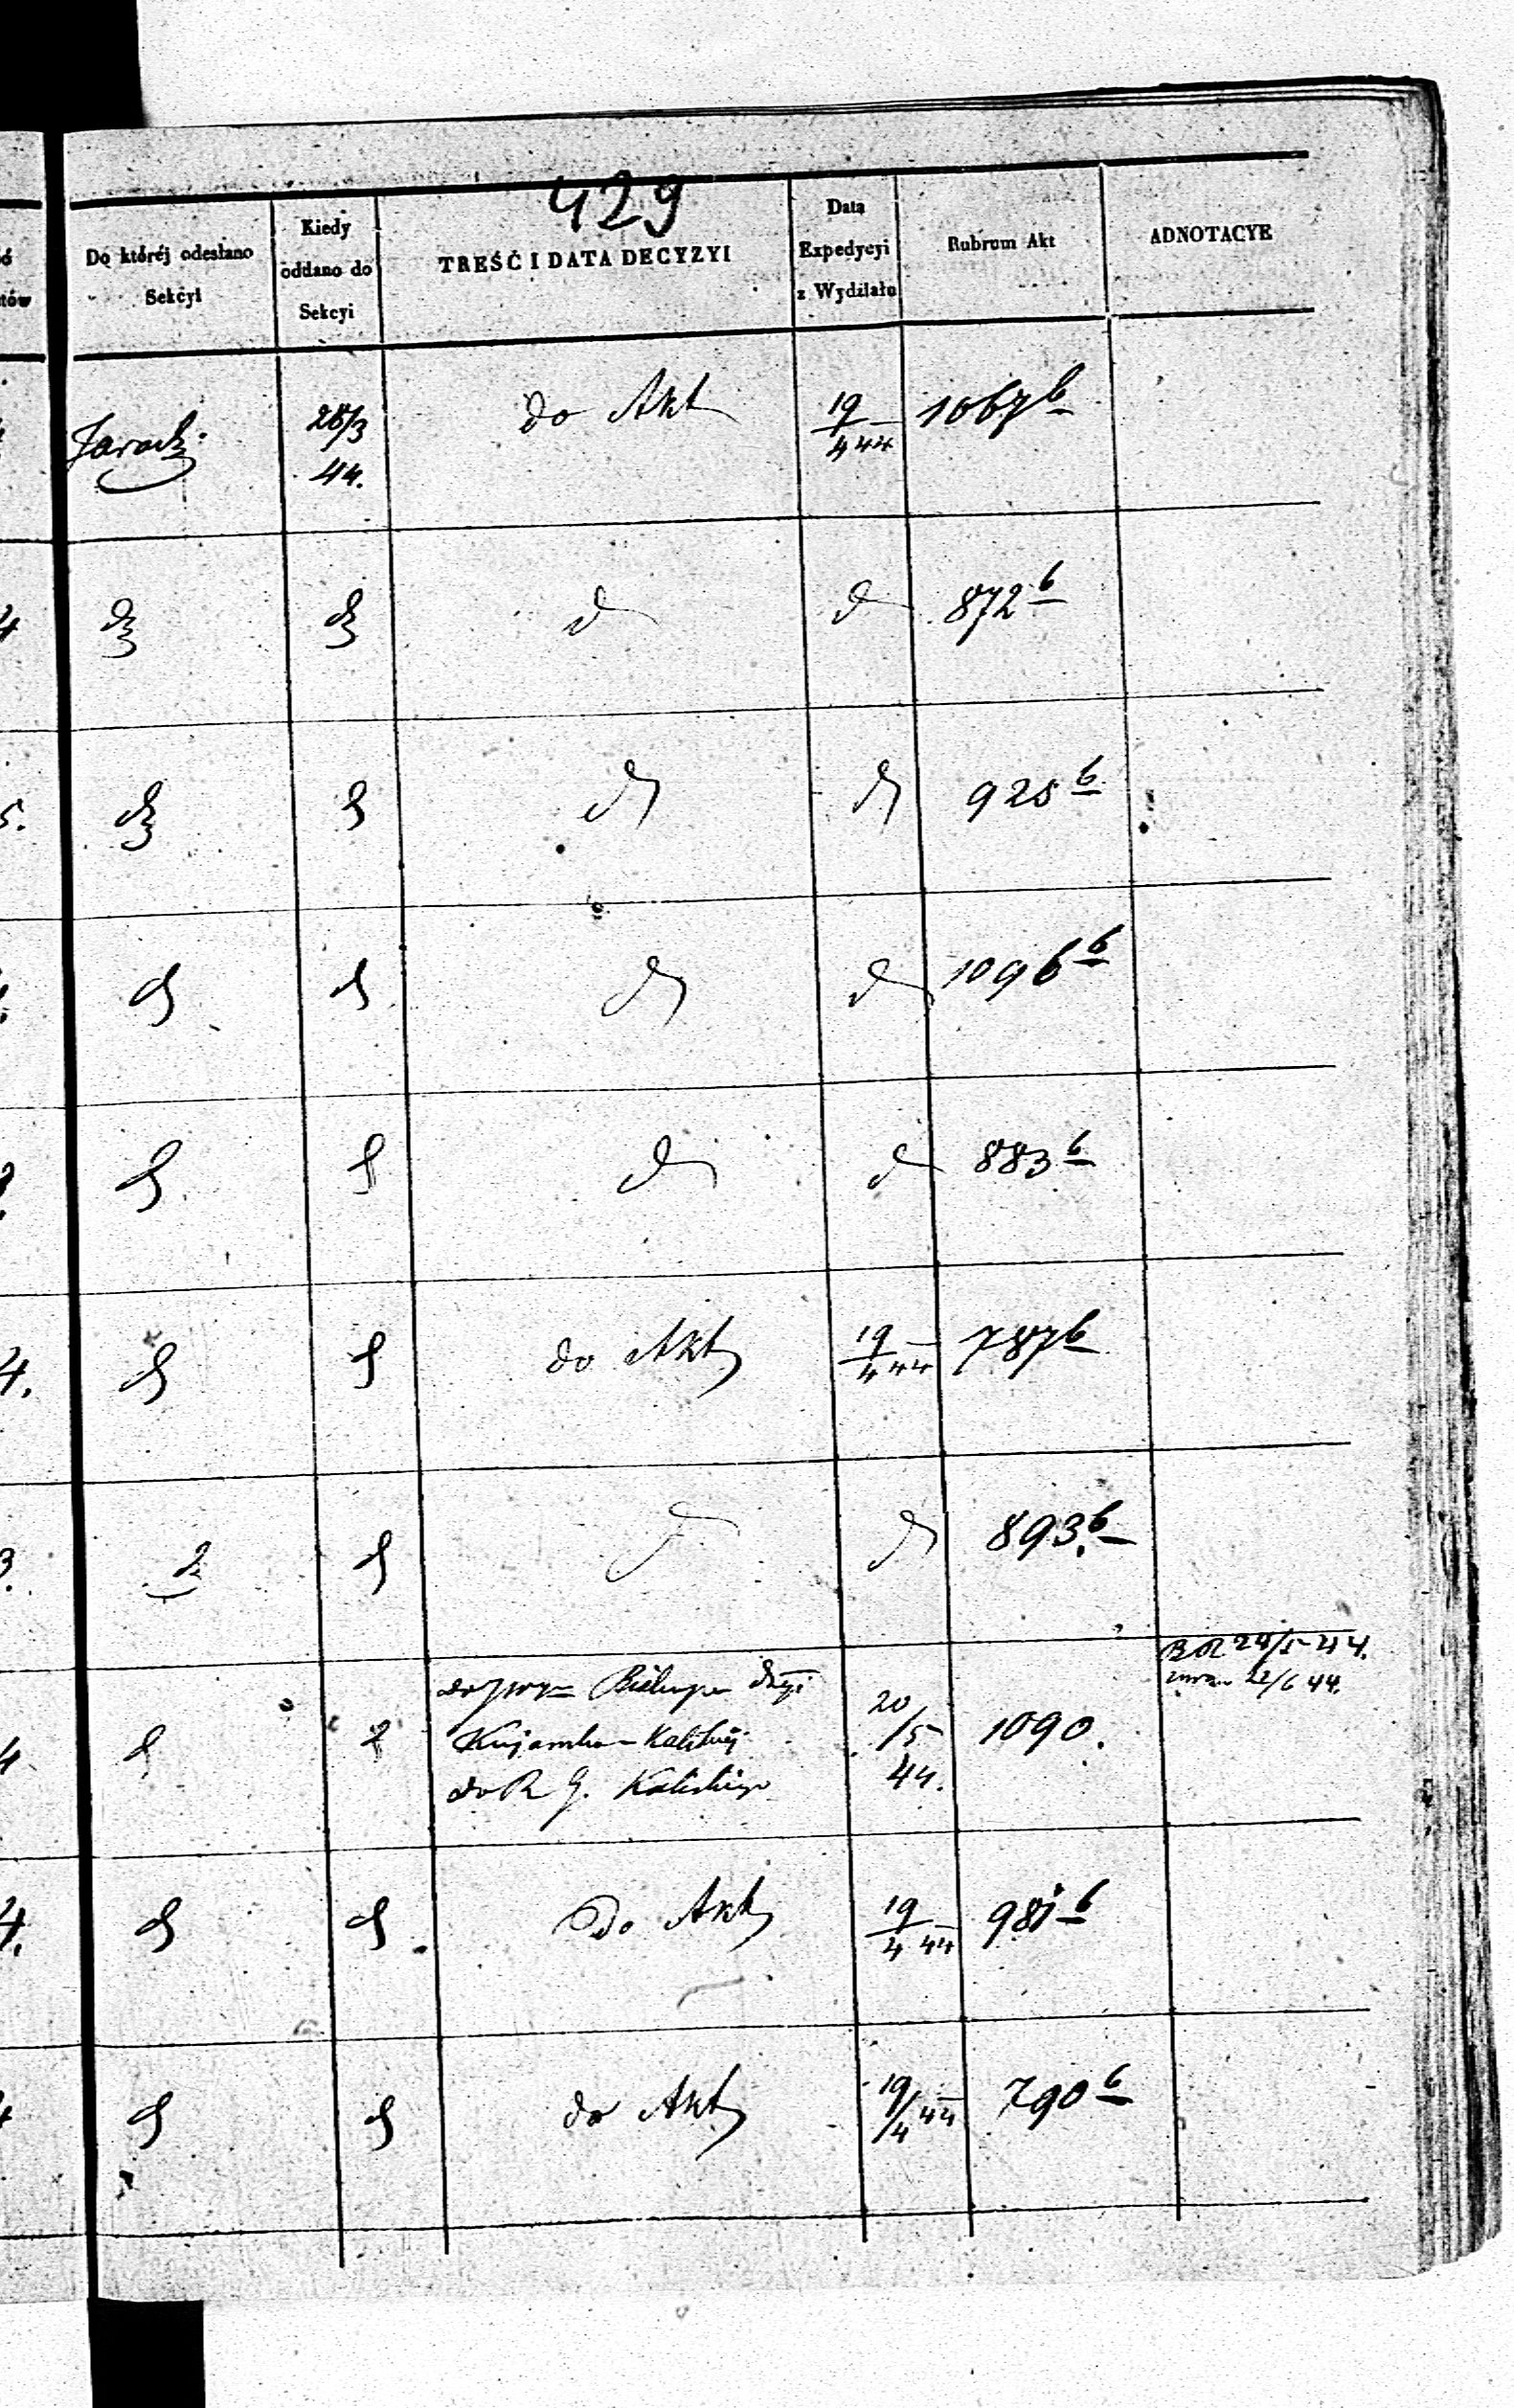 429
Do któréj odesłano Sekcyi
Kiedy oddano do Sekcyi
TREŚĆ I DATA DECYZYI
Data Expedycyi z Wydziału
Rubrum Akt
ADNOTACYE
28/3 44. do Akt 19/4 44 1067 b
d d d d 872 b
d d d d 925 b
d d d d 1096 b
d d d d 883 b
d d do Akt 19/4 44 787 b
d d d d 893. b
d d do Biskupa
Kujawsko-Kaliskiej
do R G. Kaliskiego
20/5 44. 1090. 24/5 44.
22/6 44.
d d Do Akt 19/4 44 981 b
d d do Akt 19/4 44 790 b